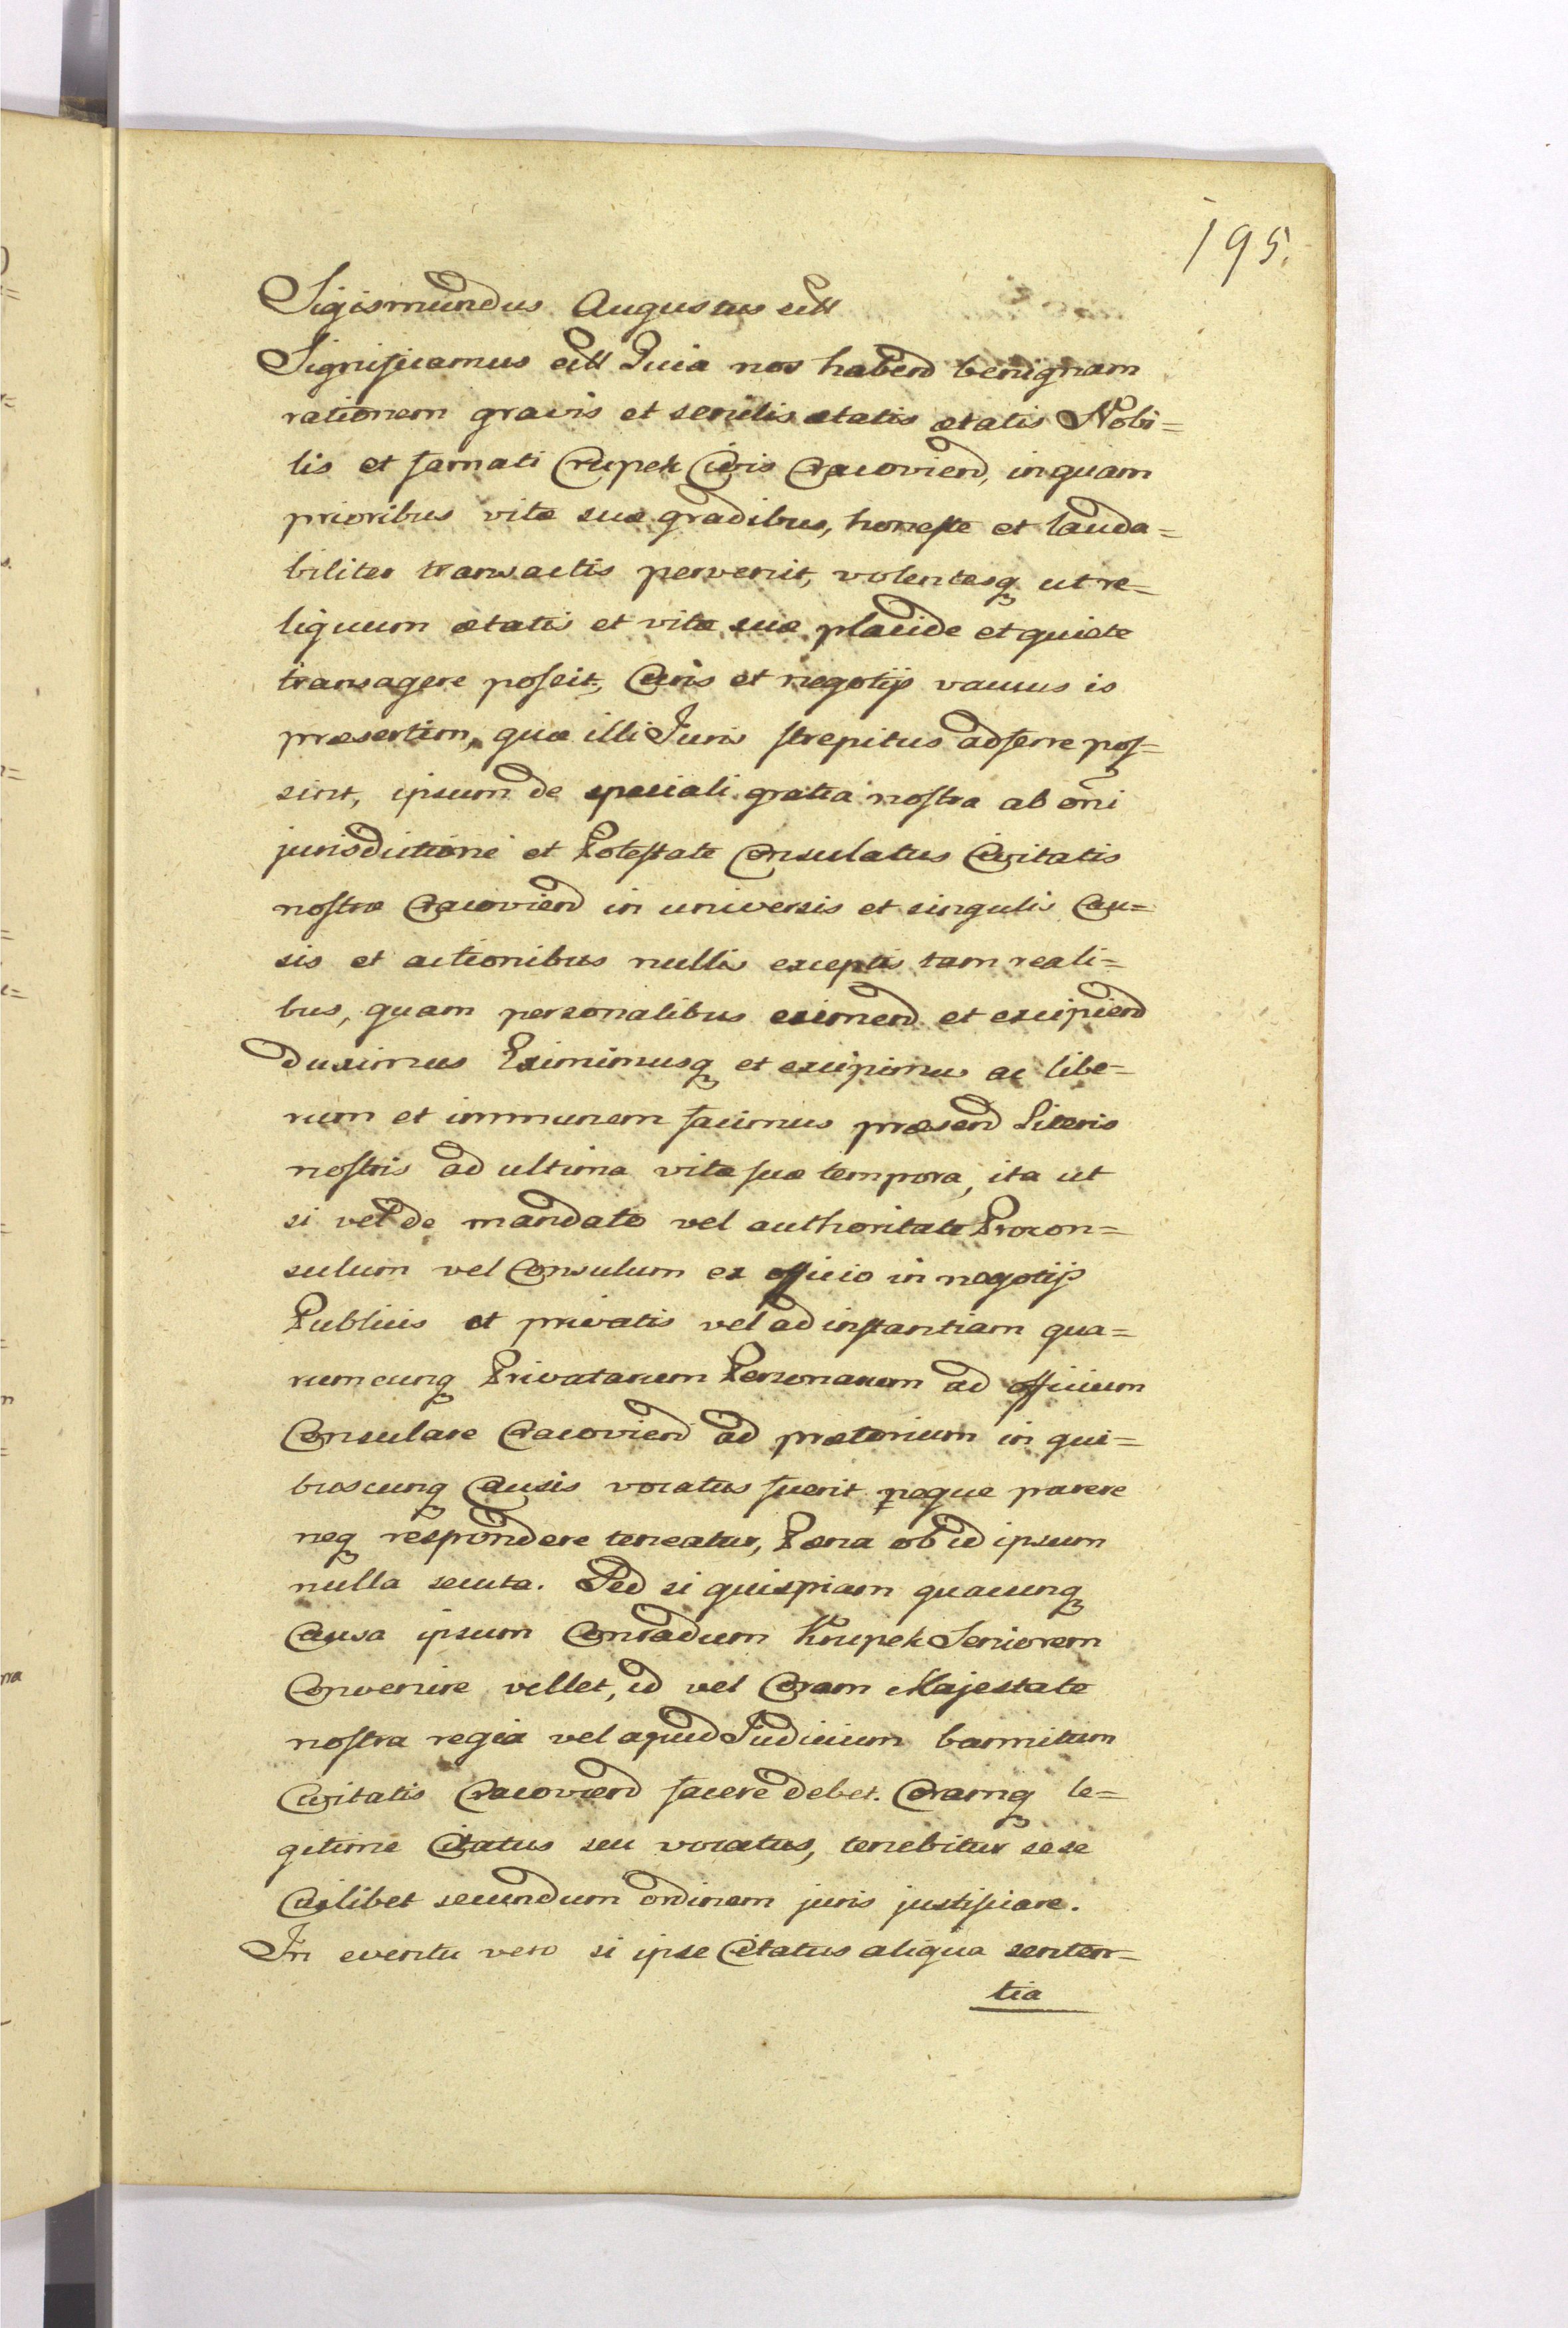 195.
Sigismundus Augustus etc
Significamus etc Quia nos habend benignam
rationem gravis et senilis ætatis ætatis Nobi=
lis et famati Crupek Civis Cracoviend, in quam
prioribus vitæ suæ gradibus, honeste et lauda=
biliter transactis pervenit, volentesq ut re=
liquum ætatis et vitæ suæ placide et quiete
transagere poscit, Curis et negotijs vacuus is
præsertim, quæ illi Juris strepitus adferre pos=
sint, ipsum de speciali gratia nostra ab oñi
jurisdictione et Potestate Consulatus Civitatis
nostræ Cracoviend in universis et singulis Cau=
sis et actionibus nullis exceptis tam reali=
bus, quam personalibus eximend et excipiend
duximus Eximimusq et excipimus ac libe=
rum et immunem facimus præsend Literis
nostris ad ultima vitæ suæ tempora, ita ut
si vel de mandato vel authoritate Procon=
sulum vel Consulum ex officio in negotijs
Publicis et privatis vel ad instantiam qua=
rumcunq Privatarum Personarum ad officium
Consulare Cracoviend ad prætorium in qui=
buscunq Causis vocatus fuerit neque parere
neq respondere teneatur, Pæna ob id ipsum
nulla secuta. Sed si quispiam quacunq
Causa ipsum Conradum Krupek Seniorem
Convenire vellet, id vel Coram Majestate
nostra regia vel apud Judicium bannitum
Civitatis Cracoviend facere debet. Coramq le=
gitime Citatus seu vocatus, tenebitur sese
Cuilibet secundum ordinem juris justificare.
In eventu vero si ipse Citatus aliqua senten=
tia